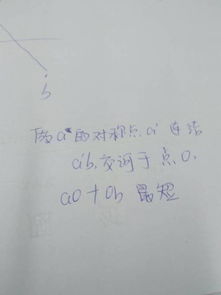 b
做a的对称点a' 连结
a'b,交河于点O.
aO+Ob 最短